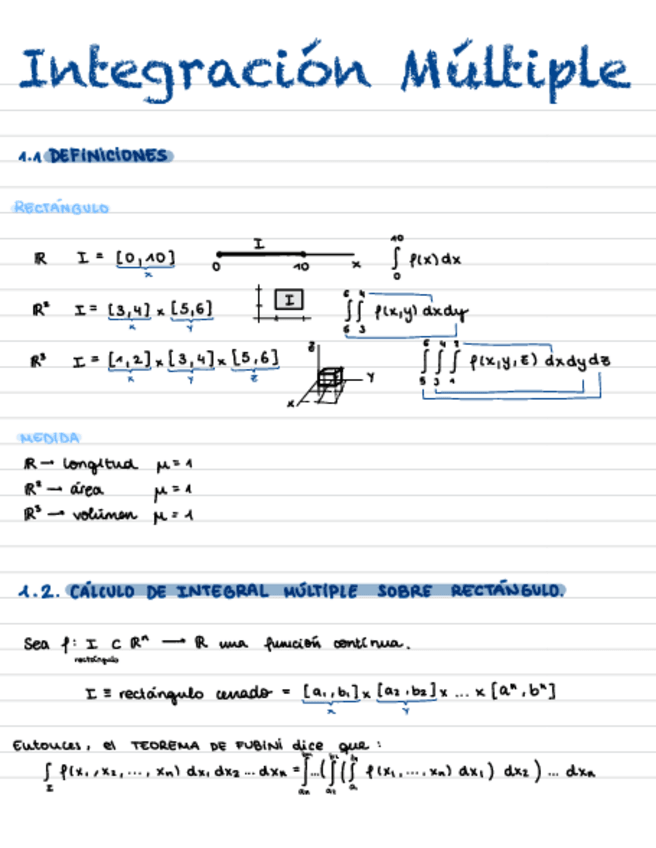 Integración Múltiple
1.1 DEFINICIONES
RECTÁNGULO
R I = [0,10] x I 0 10 x ∫₀¹⁰ f(x)dx
R² I = [3,4] x [5,6] x y I ∫₅⁶∫₃⁴ f(x,y) dxdy
R³ I = [1,2] x [3,4] x [5,6] x y z z y x ∫₅⁶∫₃⁴∫₁² f(x,y,z) dxdydz
MEDIDA
R → longitud μ = 1
R² → área μ = 1
R³ → volúmen μ = 1
1.2. CÁLCULO DE INTEGRAL MÚLTIPLE SOBRE RECTÁNGULO.
Sea f: I ⊂ Rⁿ → R una función contínua.
rectángulo
I ≡ rectángulo cerrado = [a₁,b₁] x [a₂,b₂] x ... x [aⁿ,bⁿ]
x y
Entonces, el TEOREMA DE FUBINI dice que:
∫_I f(x₁,x₂,..., xₙ) dx₁ dx₂ ... dxₙ = ∫ₐₙᵇⁿ ...(∫ₐ₂ᵇ²(∫ₐ₁ᵇ¹ f(x₁,...,xₙ) dx₁) dx₂) ... dxₙ